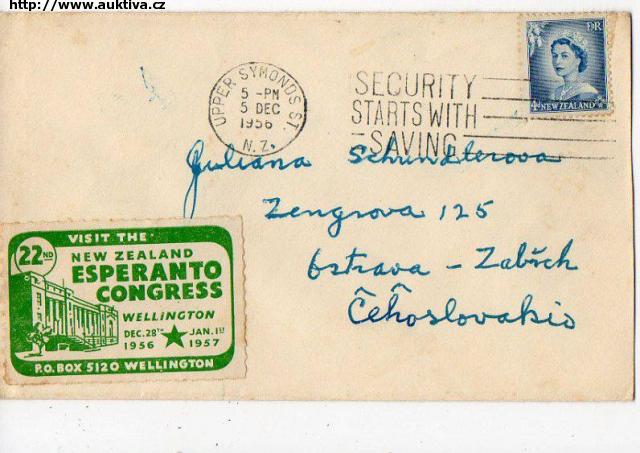 http://www.auktiva.cz
UPPER SYMONDS ST.
5 - PM
5 DEC
1956
N.Z.
SECURITY
STARTS WITH
SAVING
E R
4d NEW ZEALAND
Juliana Schindlerova
Zengrova 125
Ostrava - Zábřeh
Ĉeĥoslovakio
VISIT THE
22ND
NEW ZEALAND
ESPERANTO
CONGRESS
WELLINGTON
DEC. 28TH JAN. 1ST
1956 1957
P.O. BOX 5120 WELLINGTON